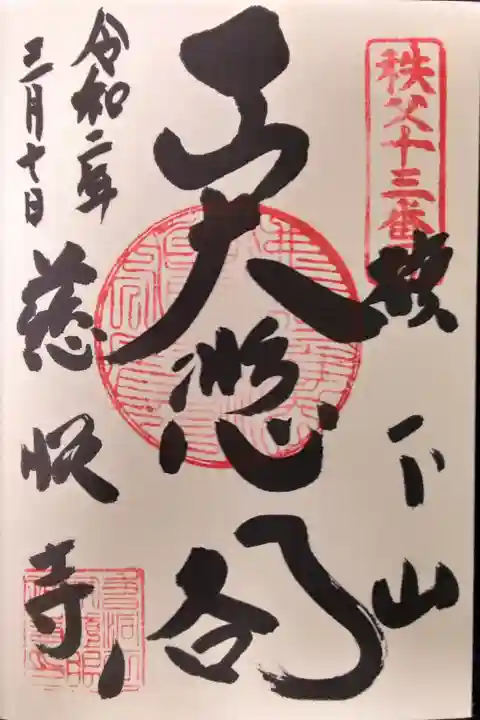 秩父十三番
旗下山
大悲閣
令和二年
三月十日
慈眼寺